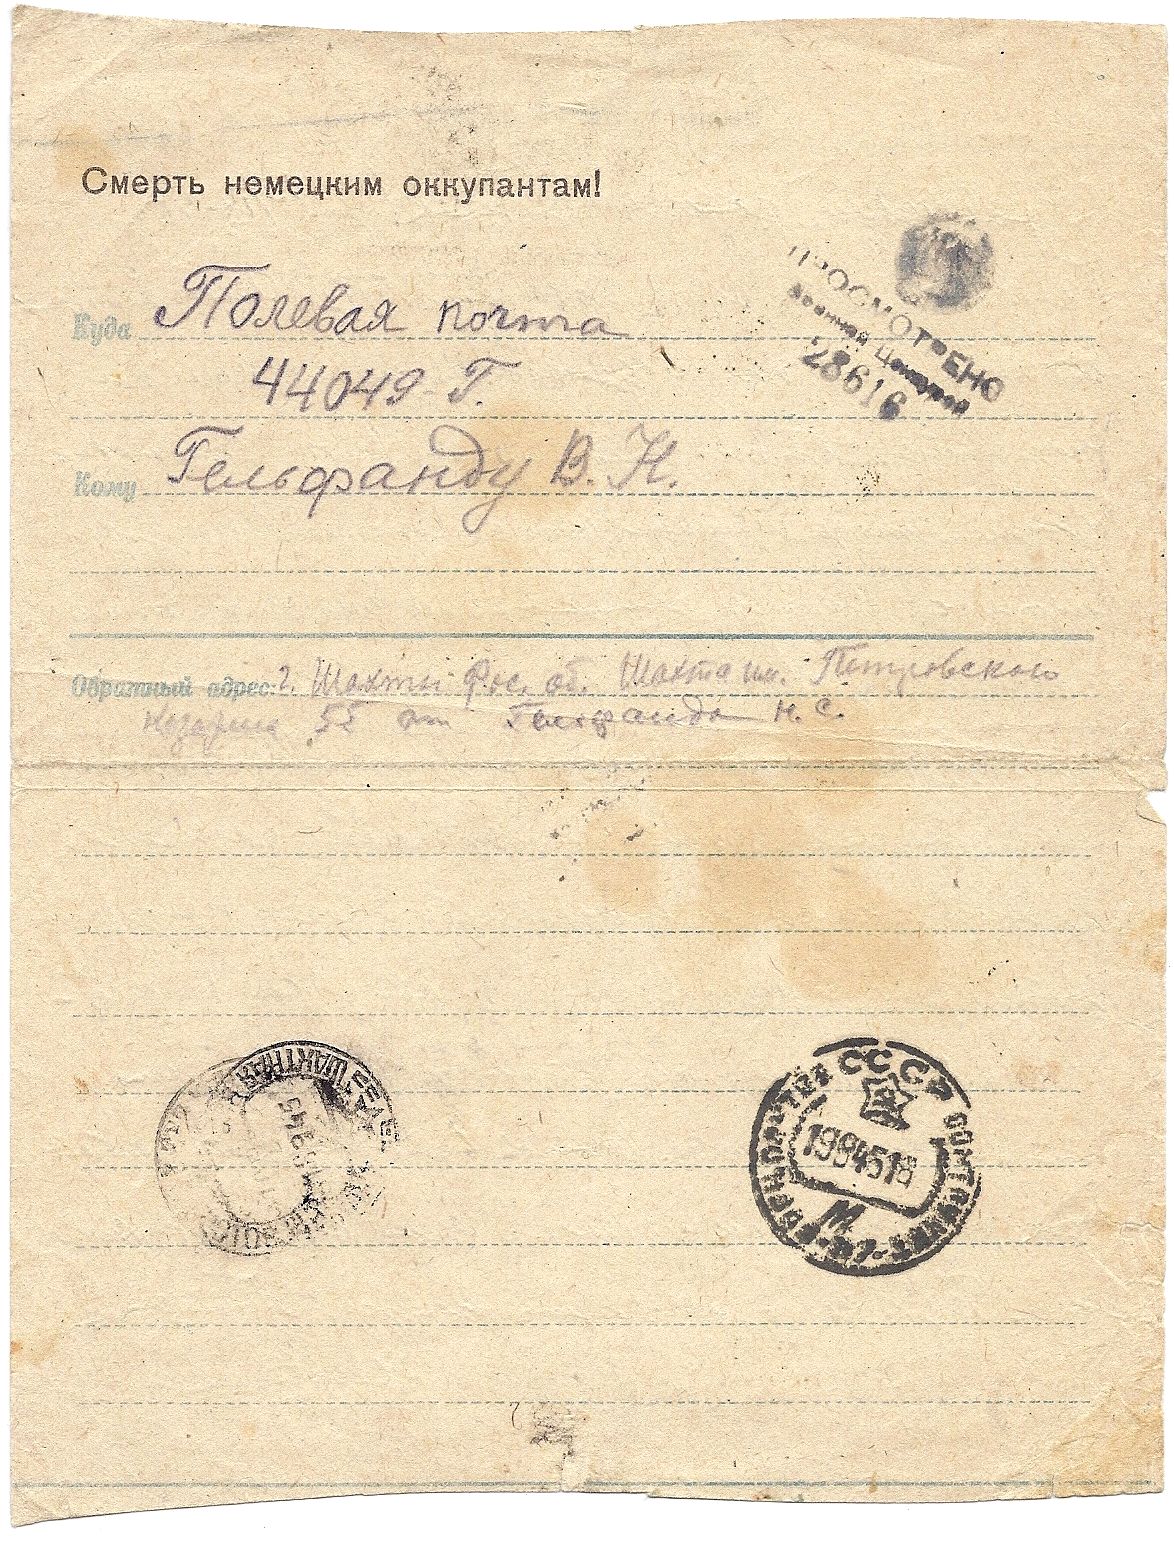 Смерть немецким оккупантам!
ПРОСМОТРЕНО
Военной Цензурой
28616
Куда Полевая почта
44049-Г.
Кому Гельфанду В. Н.
Обратный адрес: г. Шахты Рос. об. Шахта им. Петровского
55 от Гельфанда Н. С.
ШАХТНАЯ
СССР
М.